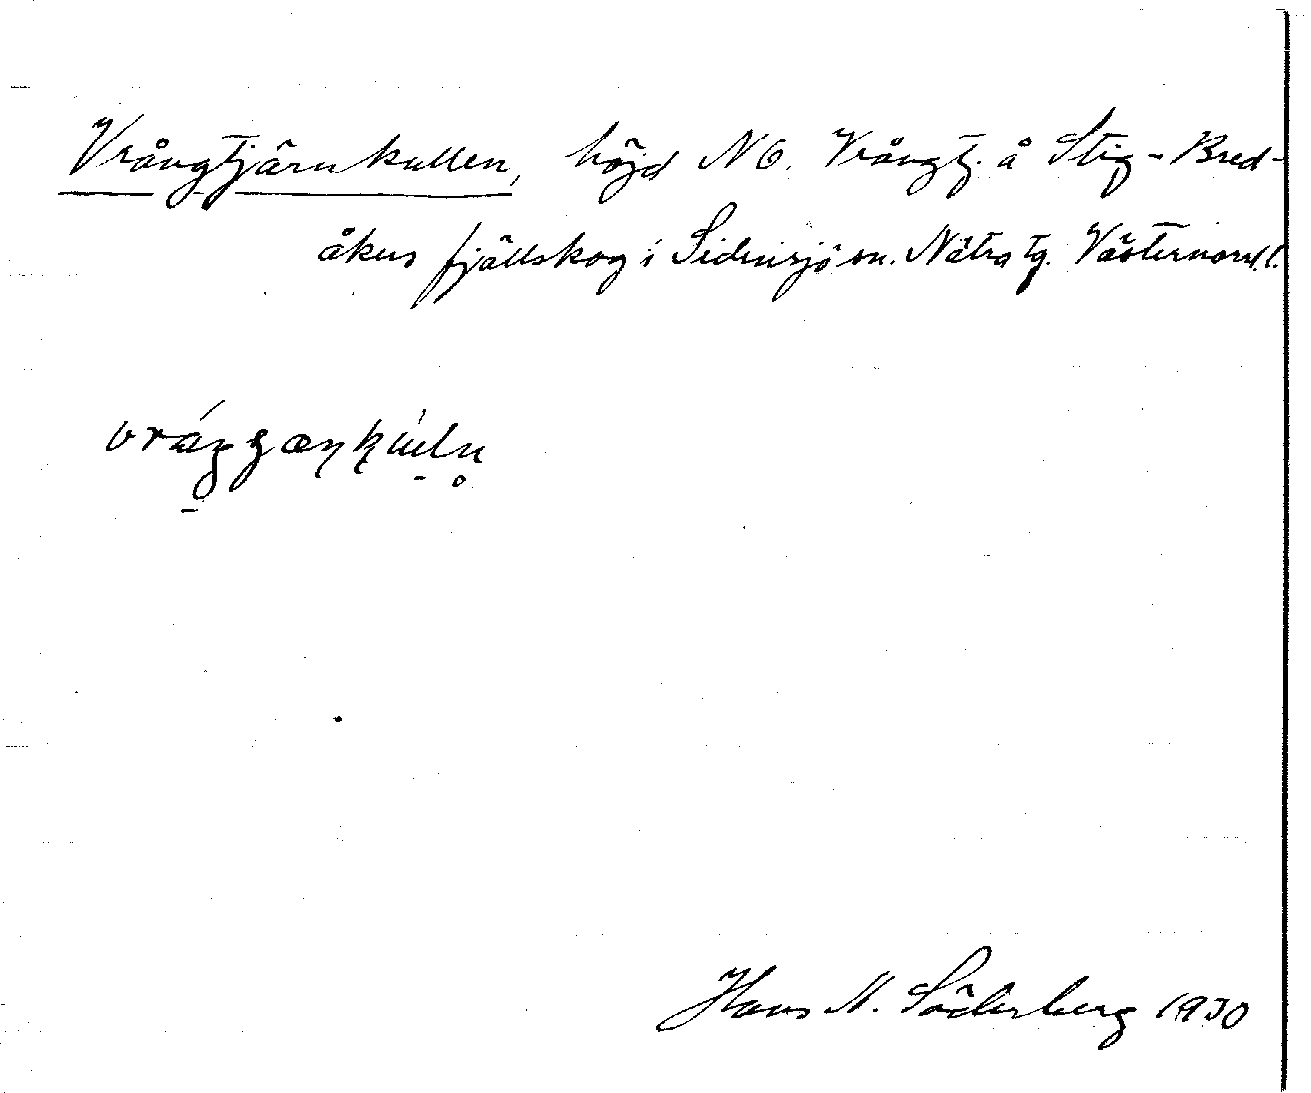 Vrångtjärnkullen, höjd NO. Vrångtj. å Stig-Bred-
åkers fjällskog i Sidensjö sn. Nätra tg. Västernorrl. l.
Hans N. Söderberg 1930